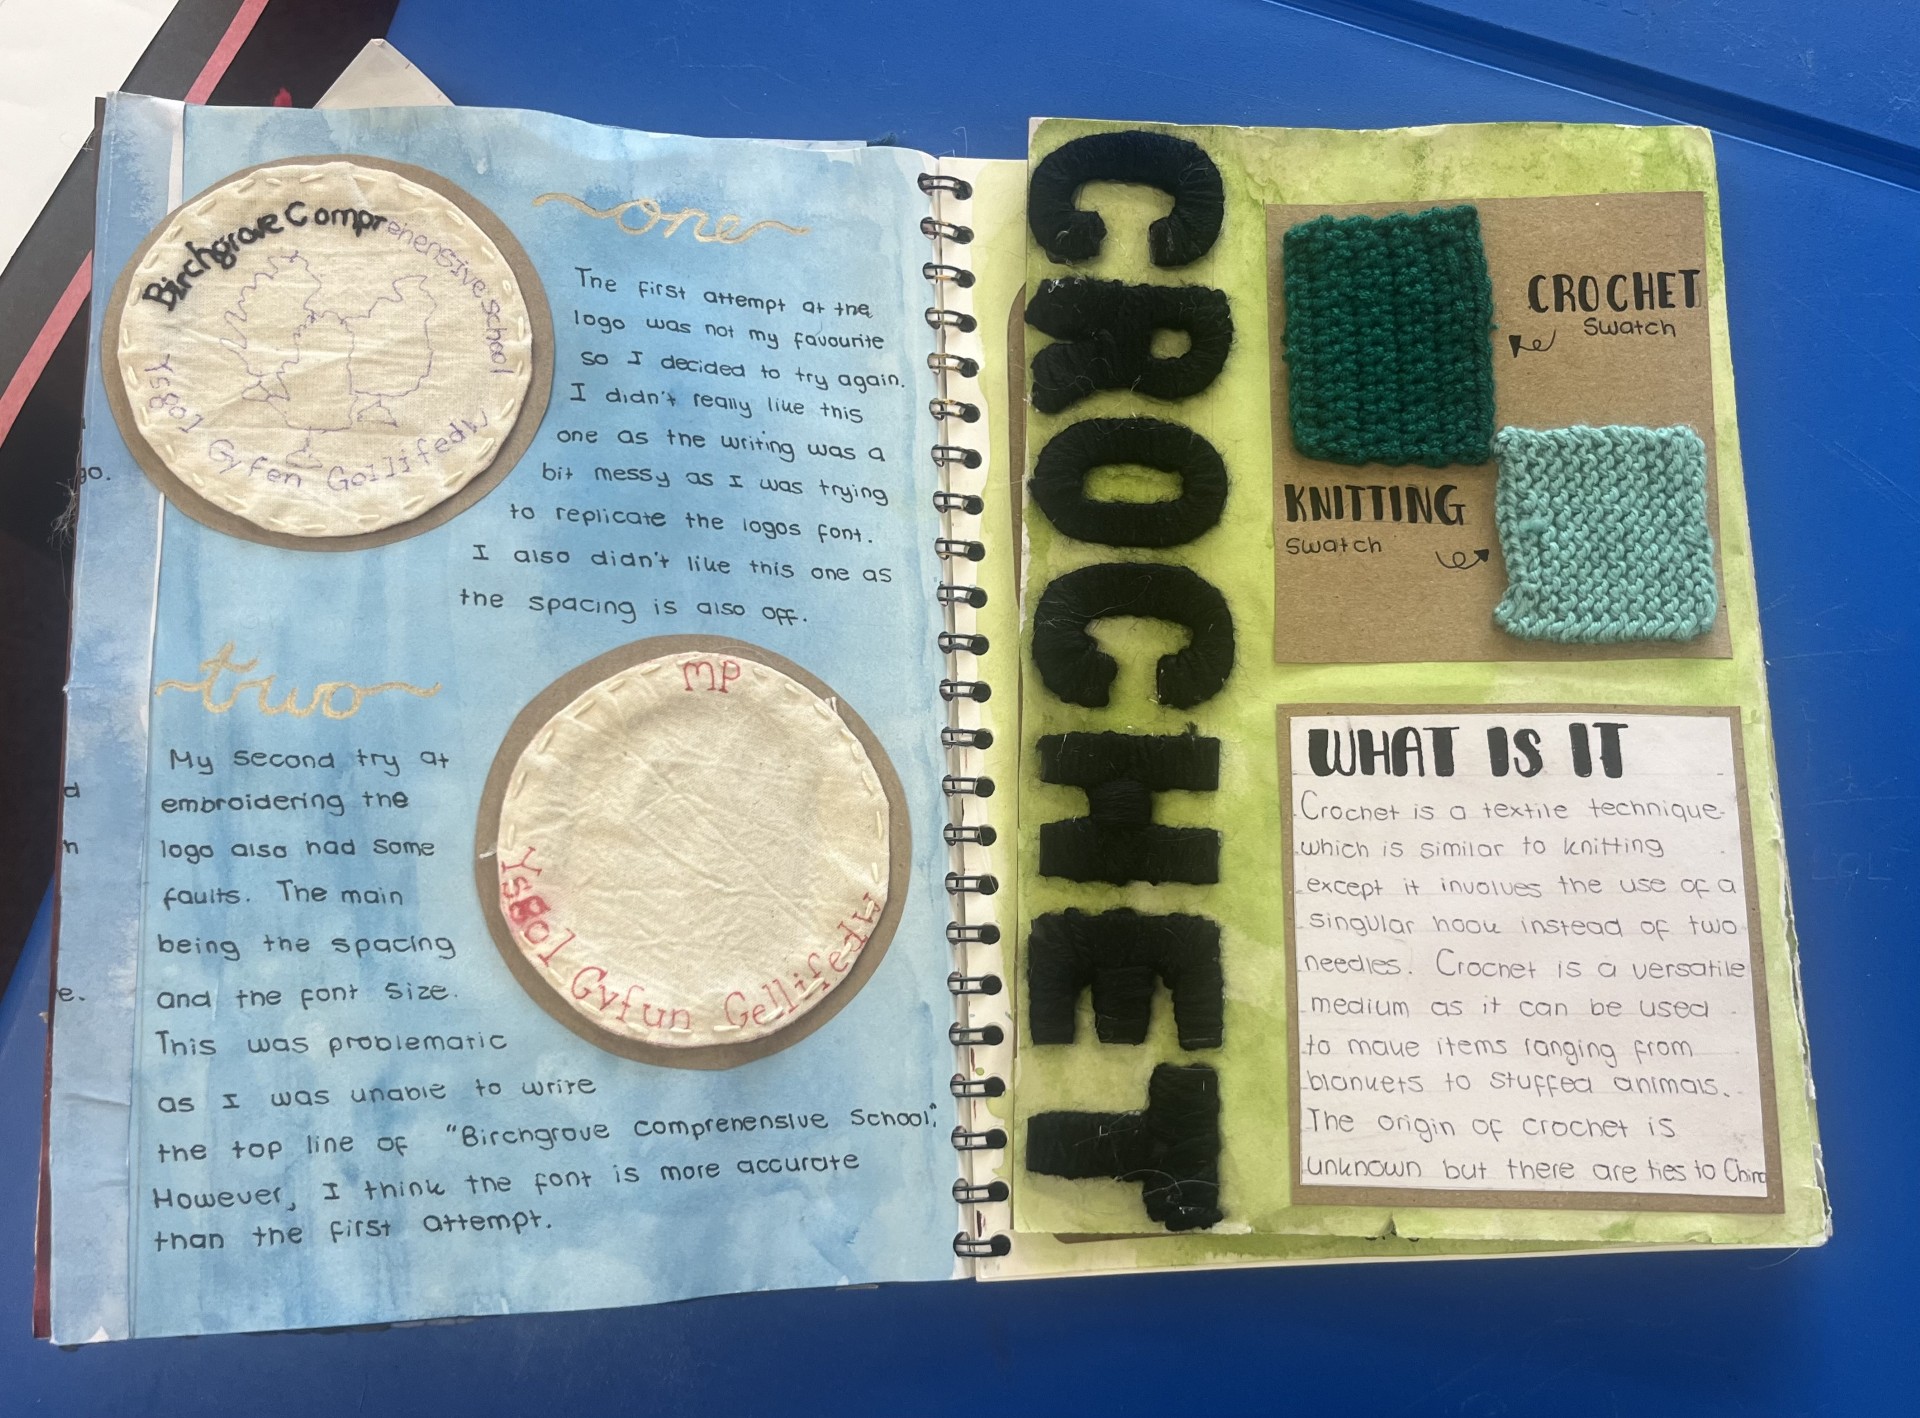 Birchgrove Comprehensive School
Ysgol Gyfen Gellifedw
one
The first attempt at the
logo was not my favourite
so I decided to try again.
I didn't really like this
one as the writing was a
bit messy as I was trying
to replicate the logos font.
I also didn't like this one as
the spacing is also off.
two
MP
Ysgol Gyfun Gellifedw
My second try at
embroidering the
logo also had some
faults. The main
being the spacing
and the font size.
This was problematic
as I was unable to write
the top line of "Birchgrove Comprehensive School".
However, I think the font is more accurate
than the first attempt.
go.
d
n
e.
CROCHET
CROCHET
Swatch
KNITTING
Swatch
WHAT IS IT
Crochet is a textile technique
which is similar to knitting
except it involves the use of a
singular hook instead of two
needles. Crochet is a versatile
medium as it can be used
to make items ranging from
blankets to stuffed animals.
The origin of crochet is
unknown but there are ties to China